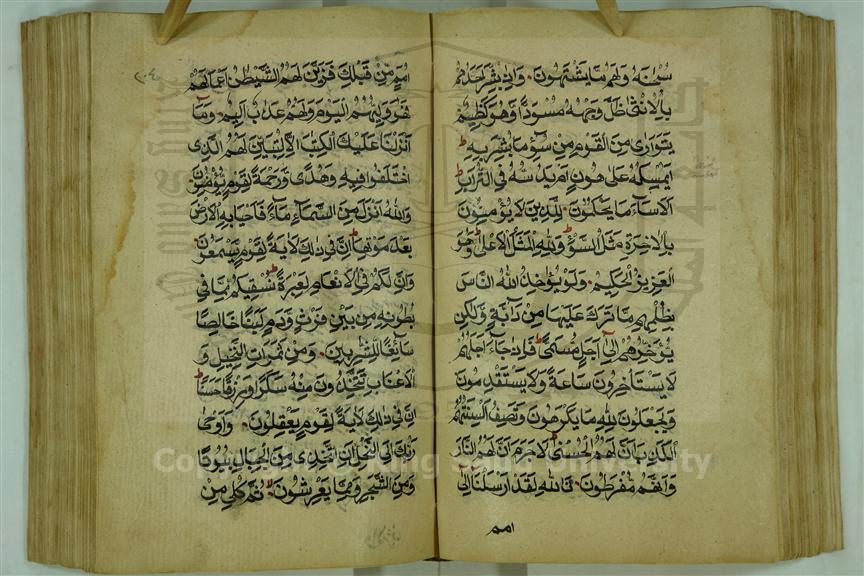 سبحنه ولهم ما يشتهون. واذا بشر احدهم
بالانثى ظل وجهه مسودا وهو كظيم
يتوارى من القوم من سوء ما بشر به ط
ايمسكه على هون ام يدسه فى التراب ط
الا ساء ما يحكمون. للذين لا يؤمنون
بالاخرة مثل السوء ولله المثل الاعلى ط وهو
العزيز الحكيم. ولو يؤاخذ الله الناس
بظلمهم ما ترك عليها من دابة ولكن
يؤخرهم الى اجل مسمى ط فاذا جاء اجلهم
لا يستاخرون ساعة ولا يستقدمون
ويجعلون لله ما يكرهون وتصف السنتهم
الكذب ان لهم الحسنى ط لا جرم ان لهم النار
وانهم مفرطون. تالله لقد ارسلنا الى
امم
امم من قبلك فزين لهم الشيطن اعمالهم
فهو وليهم اليوم ولهم عذاب اليم. وما
انزلنا عليك الكتب الا لتبين لهم الذى
اختلفوا فيه وهدى ورحمة لقوم يؤمنون
والله انزل من السماء ماء فاحيا به الارض
بعد موتها ط ان فى ذلك لاية لقوم يسمعون
وان لكم فى الانعام لعبرة ط نسقيكم مما فى
بطونه من بين فرث ودم لبنا خالصا
سائغا للشربين. ومن ثمرت النخيل و
الاعناب تتخذون منه سكرا ورزقا حسنا ط
ان فى ذلك لاية لقوم يعقلون. واوحى
ربك الى النحل ان اتخذى من الجبال بيوتا
ومن الشجر ومما يعرشون. ثم كلى من
Copyright © King Saud University